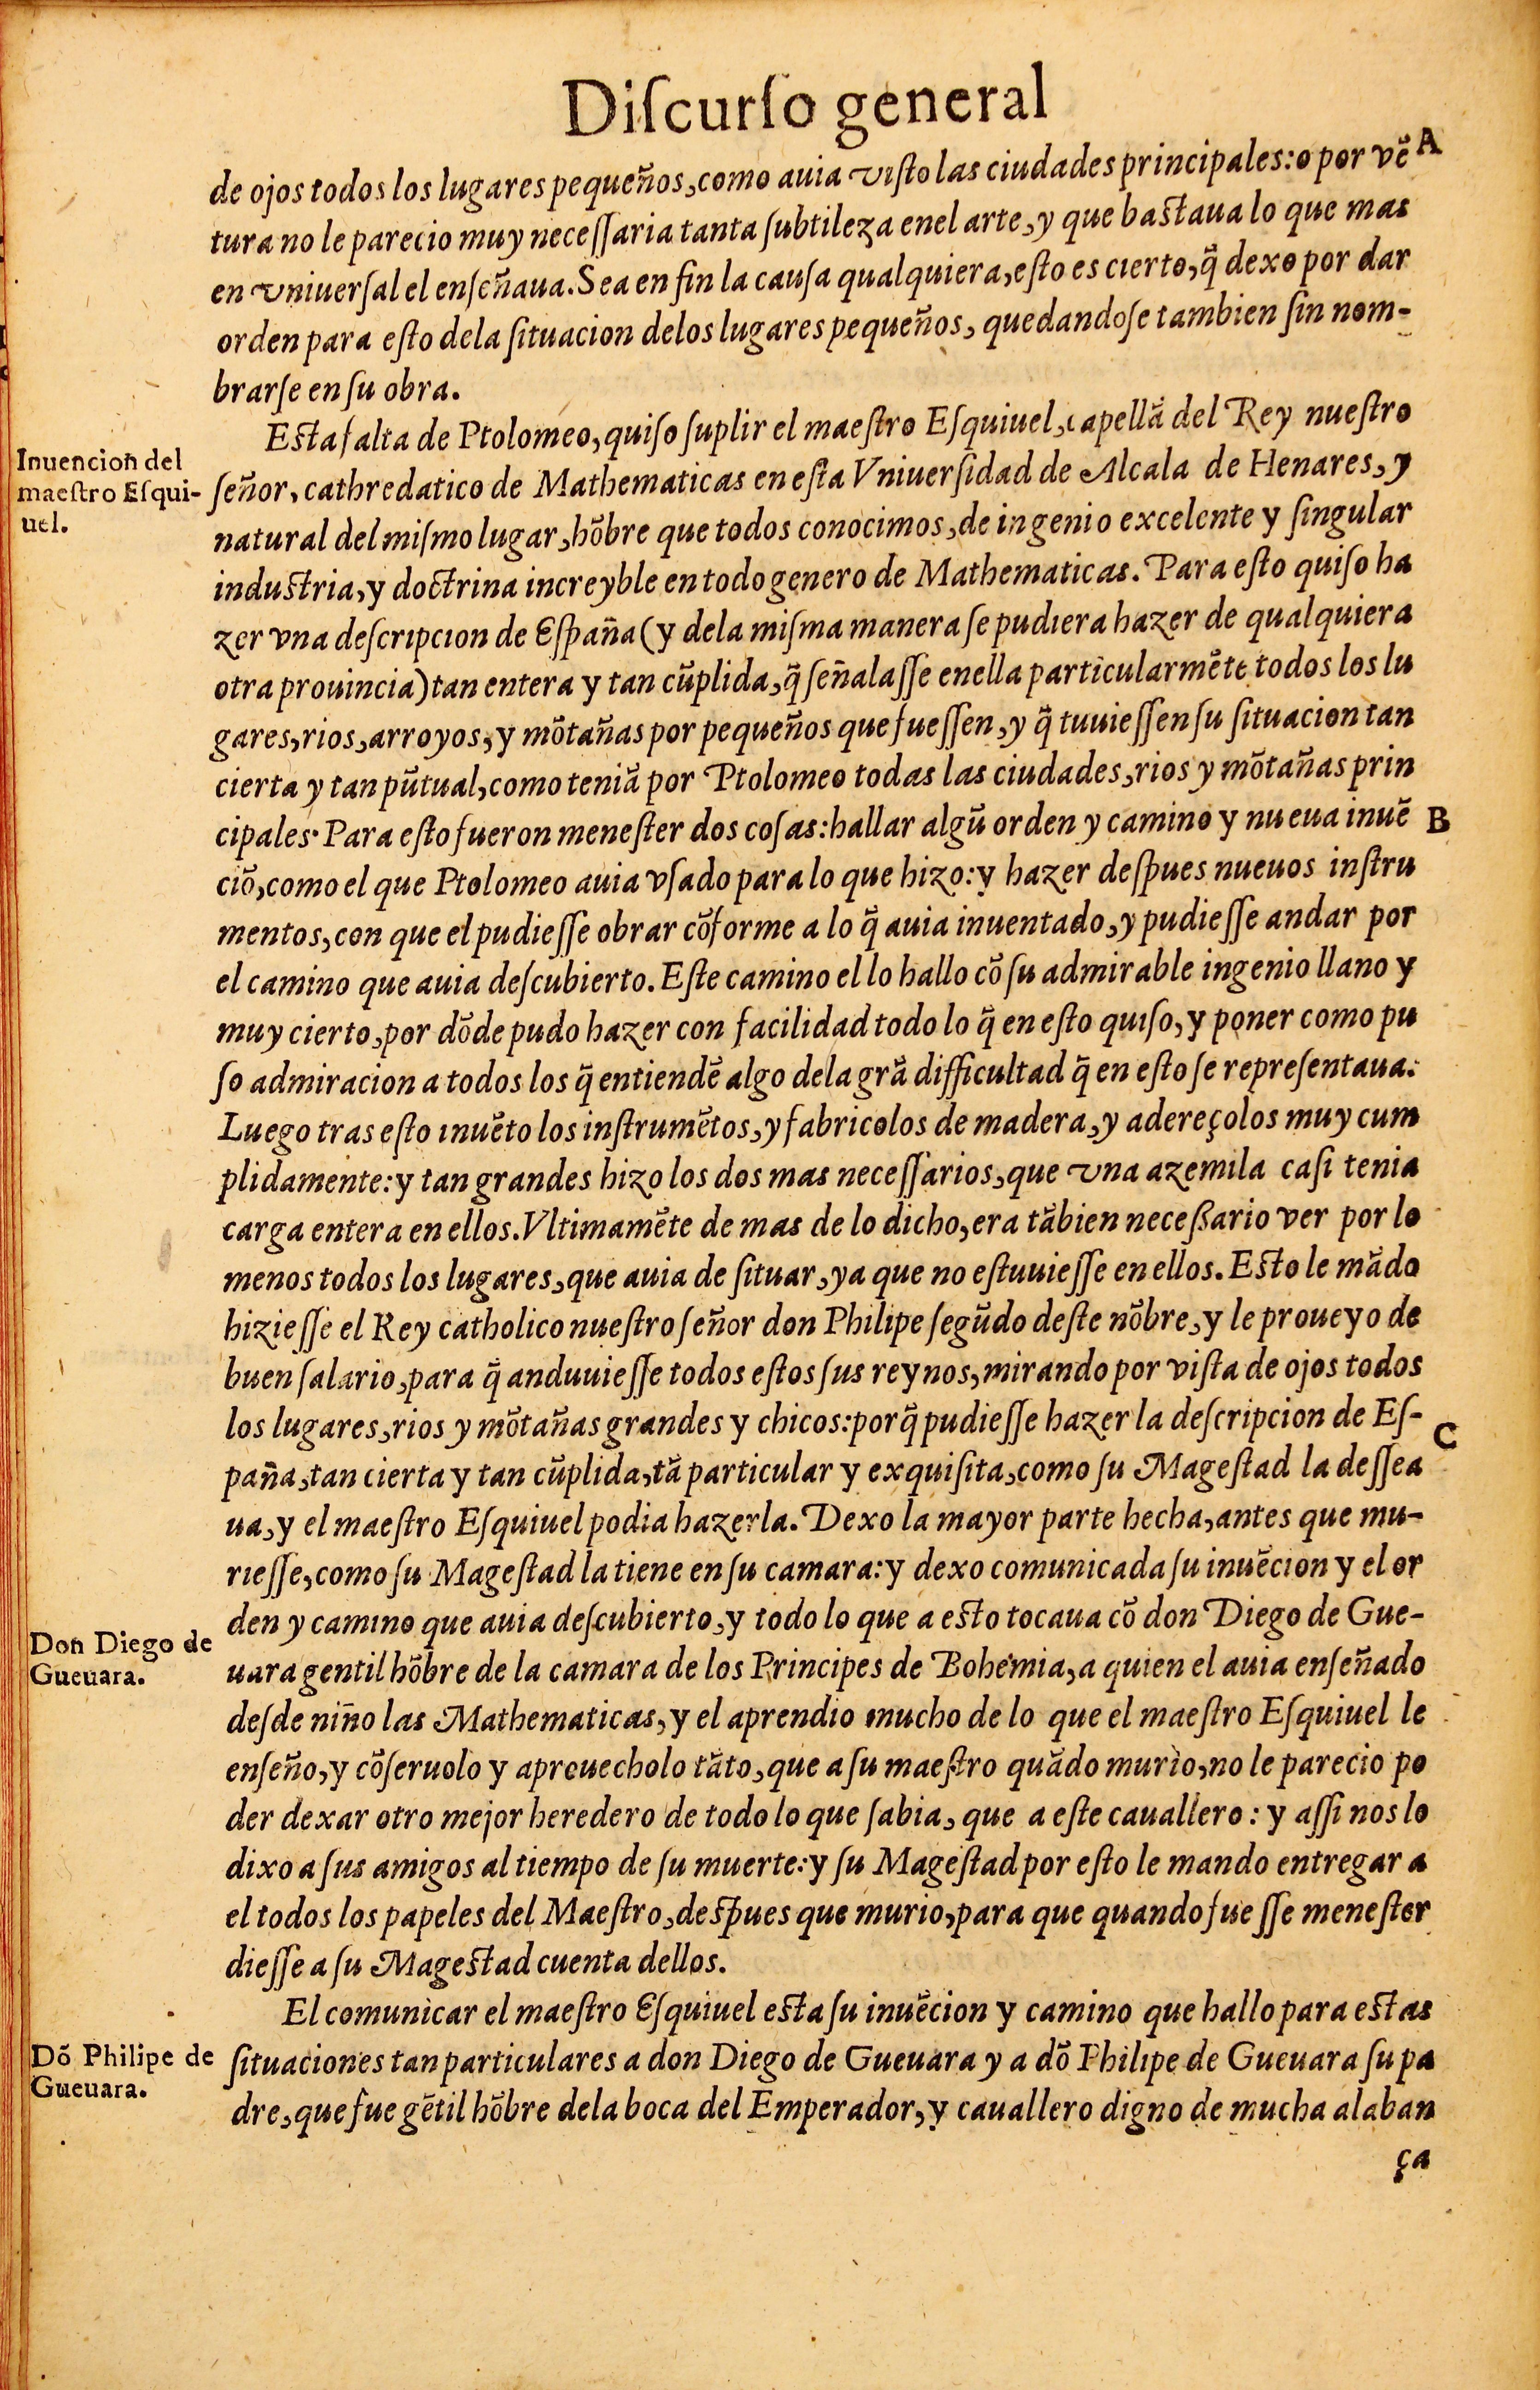 Diſcurſo general
de ojos todos los lugares pequeños, como auia viſto las ciudades principales: o por vẽ A
tura no le parecio muy neceſſaria tanta ſubtileza enel arte, y que baſtaua lo que mas
en vniuerſal el enſeñaua. Sea en fin la cauſa qualquiera, eſto es cierto, q̃ dexo por dar
orden para eſto dela ſituacion delos lugares pequeños, quedandoſe tambien ſin nom-
brarſe en ſu obra.
Eſta falta de Ptolomeo, quiſo ſuplir el maeſtro Eſquiuel, capellã del Rey nueſtro
Inuencion del
maeſtro Eſqui-
uel.
ſeñor, cathredatico de Mathematicas en eſta Vniuerſidad de Alcala de Henares, y
natural del miſmo lugar, hõbre que todos conocimos, de ingenio excelente y ſingular
induſtria, y doctrina increyble en todo genero de Mathematicas. Para eſto quiſo ha
zer vna deſcripcion de Eſpaña (y dela miſma manera ſe pudiera hazer de qualquiera
otra prouincia) tan entera y tan cũplida, q̃ ſeñalaſſe enella particularmẽte todos los lu
gares, rios, arroyos, y mõtañas por pequeños que fueſſen, y q̃ tuuieſſen ſu ſituacion tan
cierta y tan pũtual, como teniã por Ptolomeo todas las ciudades, rios y mõtañas prin
cipales. Para eſto fueron meneſter dos coſas: hallar algũ orden y camino y nueua inuẽ B
ciõ, como el que Ptolomeo auia vſado para lo que hizo: y hazer deſpues nueuos inſtru
mentos, con que el pudieſſe obrar cõforme a lo q̃ auia inuentado, y pudieſſe andar por
el camino que auia deſcubierto. Eſte camino el lo hallo cõ ſu admirable ingenio llano y
muy cierto, por dõde pudo hazer con facilidad todo lo q̃ en eſto quiſo, y poner como pu
ſo admiracion a todos los q̃ entiendẽ algo dela grã difficultad q̃ en eſto ſe repreſentaua.
Luego tras eſto inuẽto los inſtrumẽtos, y fabricolos de madera, y adereçolos muy cum
plidamente: y tan grandes hizo los dos mas neceſſarios, que vna azemila caſi tenia
carga entera en ellos. Vltimamẽte de mas de lo dicho, era tãbien neceßario ver por lo
menos todos los lugares, que auia de ſituar, ya que no eſtuuieſſe en ellos. Eſto le mãdo
hizieſſe el Rey catholico nueſtro ſeñor don Philipe ſegũdo deſte nõbre, y le proueyo de
buen ſalario, para q̃ anduuieſſe todos eſtos ſus reynos, mirando por viſta de ojos todos
los lugares, rios y mõtañas grandes y chicos: porq̃ pudieſſe hazer la deſcripcion de Eſ- C
paña, tan cierta y tan cũplida, tã particular y exquiſita, como ſu Mageſtad la deſſea
ua, y el maeſtro Eſquiuel podia hazerla. Dexo la mayor parte hecha, antes que mu-
rieſſe, como ſu Mageſtad la tiene en ſu camara: y dexo comunicada ſu inuẽcion y el or
den y camino que auia deſcubierto, y todo lo que a eſto tocaua cõ don Diego de Gue-
Don Diego de
Gueuara.
uara gentil hõbre de la camara de los Principes de Bohemia, a quien el auia enſeñado
deſde niño las Mathematicas, y el aprendio mucho de lo que el maeſtro Eſquiuel le
enſeño, y cõſeruolo y aprouecholo tãto, que a ſu maeſtro quãdo murio, no le parecio po
der dexar otro mejor heredero de todo lo que ſabia, que a eſte cauallero: y aſſi nos lo
dixo a ſus amigos al tiempo de ſu muerte: y ſu Mageſtad por eſto le mando entregar a
el todos los papeles del Maeſtro, deſpues que murio, para que quando fueſſe meneſter
dieſſe a ſu Mageſtad cuenta dellos.
El comunicar el maeſtro Eſquiuel eſta ſu inuẽcion y camino que hallo para eſtas
Dõ Philipe de
Gueuara.
ſituaciones tan particulares a don Diego de Gueuara y a dõ Philipe de Gueuara ſu pa
dre, que fue gẽtil hõbre dela boca del Emperador, y cauallero digno de mucha alaban
ça